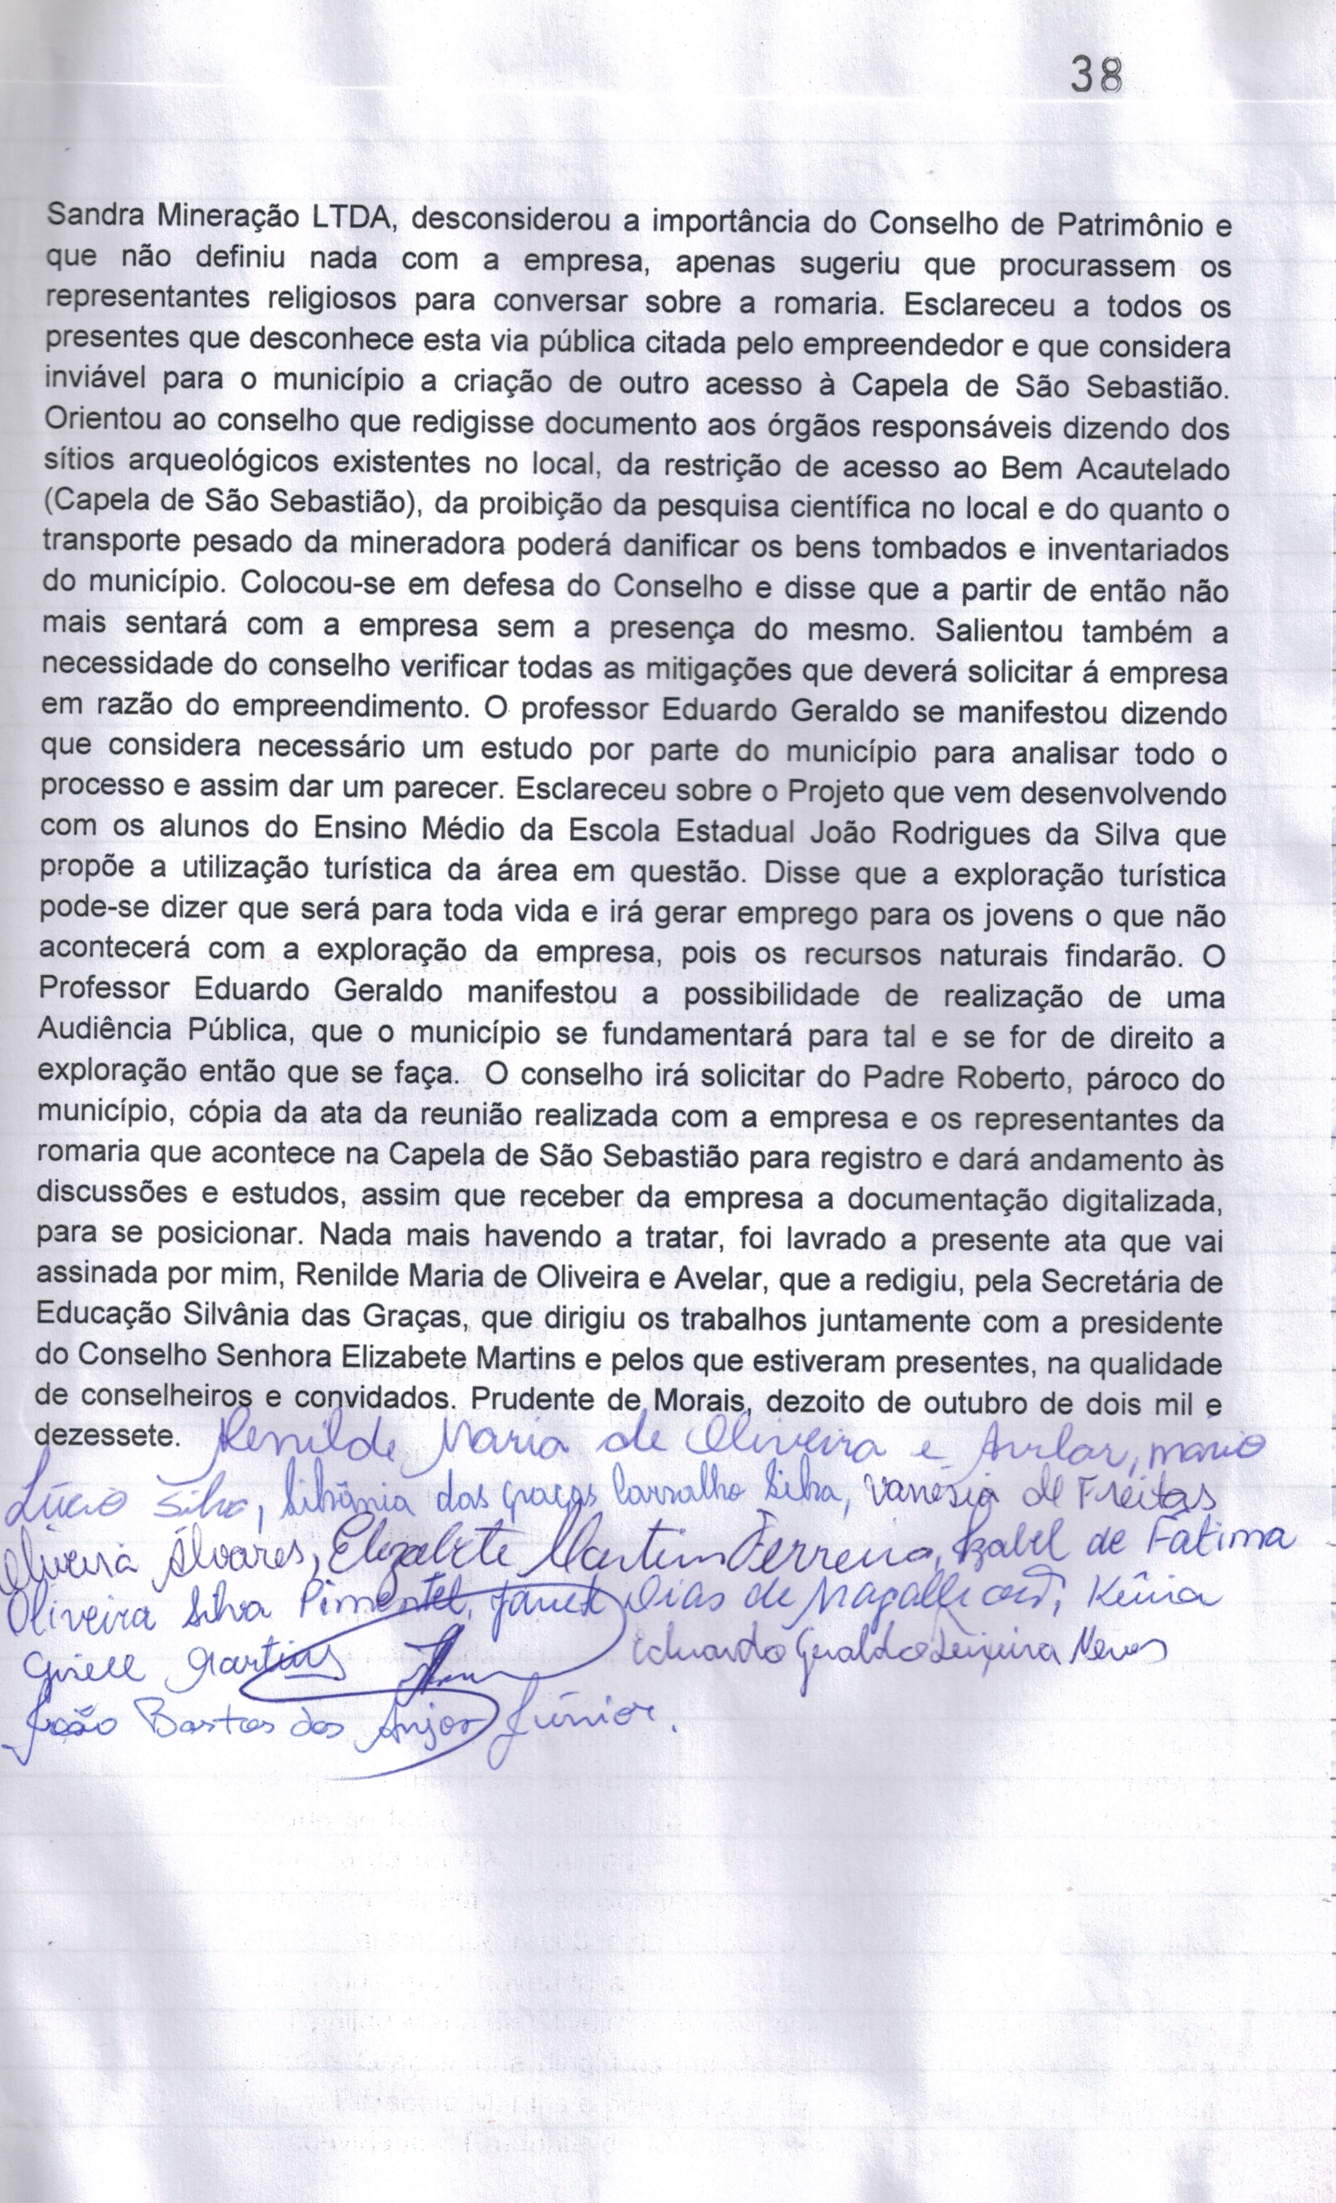 38
Sandra Mineração LTDA, desconsiderou a importância do Conselho de Patrimônio e
que não definiu nada com a empresa, apenas sugeriu que procurassem os
representantes religiosos para conversar sobre a romaria. Esclareceu a todos os
presentes que desconhece esta via pública citada pelo empreendedor e que considera
inviável para o município a criação de outro acesso à Capela de São Sebastião.
Orientou ao conselho que redigisse documento aos órgãos responsáveis dizendo dos
sítios arqueológicos existentes no local, da restrição de acesso ao Bem Acautelado
(Capela de São Sebastião), da proibição da pesquisa científica no local e do quanto o
transporte pesado da mineradora poderá danificar os bens tombados e inventariados
do município. Colocou-se em defesa do Conselho e disse que a partir de então não
mais sentará com a empresa sem a presença do mesmo. Salientou também a
necessidade do conselho verificar todas as mitigações que deverá solicitar á empresa
em razão do empreendimento. O professor Eduardo Geraldo se manifestou dizendo
que considera necessário um estudo por parte do município para analisar todo o
processo e assim dar um parecer. Esclareceu sobre o Projeto que vem desenvolvendo
com os alunos do Ensino Médio da Escola Estadual João Rodrigues da Silva que
propõe a utilização turística da área em questão. Disse que a exploração turística
pode-se dizer que será para toda vida e irá gerar emprego para os jovens o que não
acontecerá com a exploração da empresa, pois os recursos naturais findarão. O
Professor Eduardo Geraldo manifestou a possibilidade de realização de uma
Audiência Pública, que o município se fundamentará para tal e se for de direito a
exploração então que se faça. O conselho irá solicitar do Padre Roberto, pároco do
município, cópia da ata da reunião realizada com a empresa e os representantes da
romaria que acontece na Capela de São Sebastião para registro e dará andamento às
discussões e estudos, assim que receber da empresa a documentação digitalizada,
para se posicionar. Nada mais havendo a tratar, foi lavrado a presente ata que vai
assinada por mim, Renilde Maria de Oliveira e Avelar, que a redigiu, pela Secretária de
Educação Silvânia das Graças, que dirigiu os trabalhos juntamente com a presidente
do Conselho Senhora Elizabete Martins e pelos que estiveram presentes, na qualidade
de conselheiros e convidados. Prudente de Morais, dezoito de outubro de dois mil e
dezessete. Renilde Maria de Oliveira e Avelar, Mário
Lúcio Silva, Silvânia das Graças Carvalho Silva, Vanésia de Freitas
Oliveira Álvares, Elizabete Martins Ferreira, Izabel de Fátima
Oliveira Silva Pimentel, Janet Dias de Magalhães, Kênia
Gisele Martins Eduardo Geraldo Teixeira Neves
João Bastos dos Anjos Júnior.